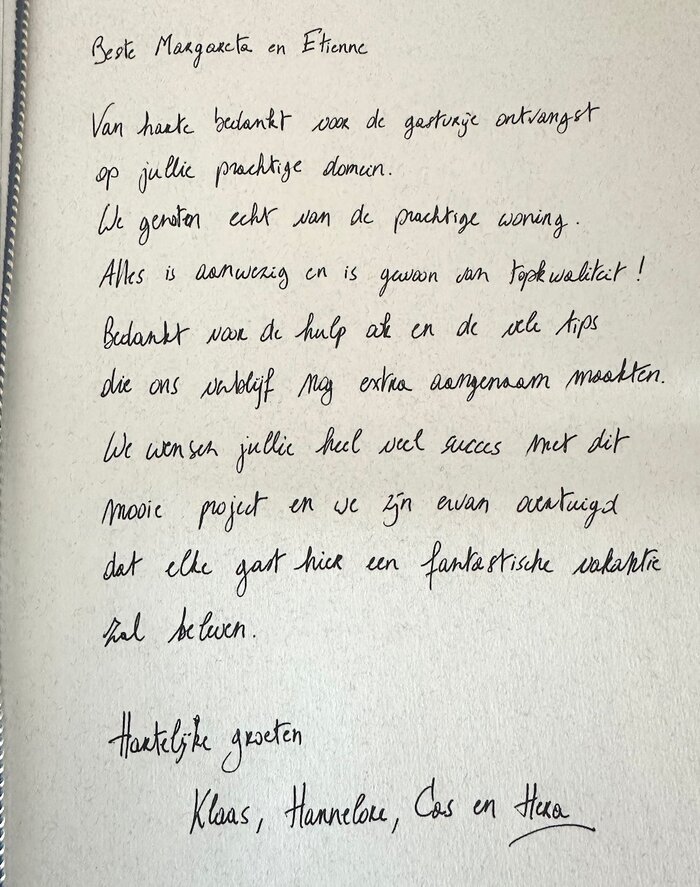 Beste Margareta en Etienne
Van harte bedankt voor de gastvrije ontvangst
op jullie prachtige domein.
We genoten echt van de prachtige woning.
Alles is aanwezig en is gewoon van topkwaliteit!
Bedankt voor de hulp ook en de vele tips
die ons verblijf nog extra aangenaam maakten.
We wensen jullie heel veel succes met dit
mooie project en we zijn ervan overtuigd
dat elke gast hier een fantastische vakantie
zal beleven.
Hartelijke groeten
Klaas, Hannelore, Cas en Hera